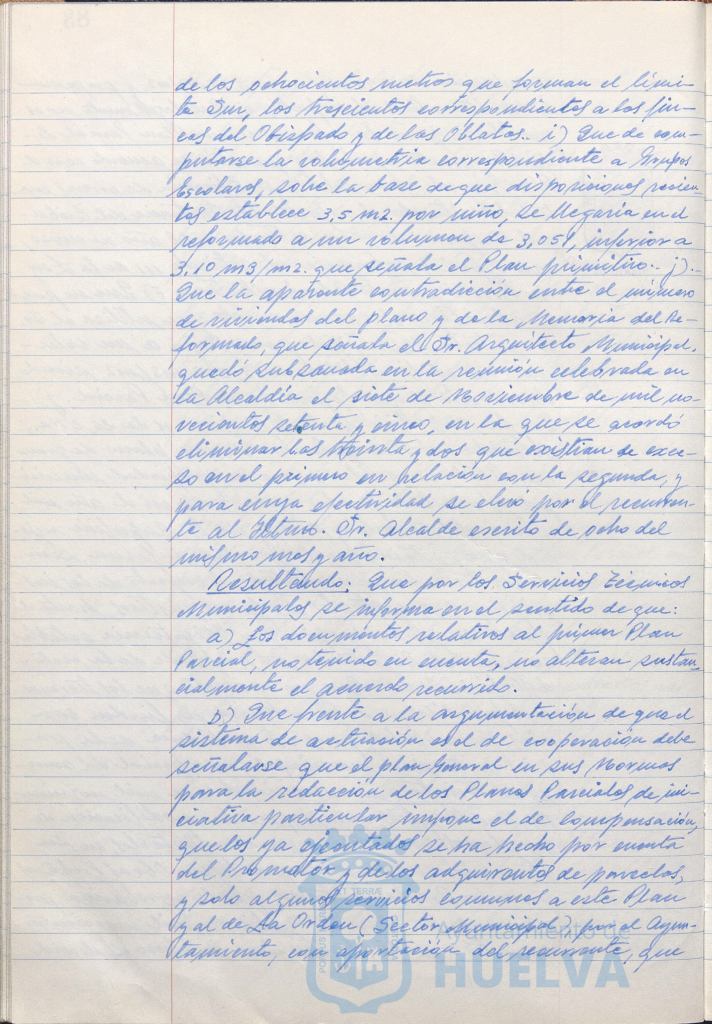 de los ochocientos metros que forman el lími-
te Sur, los trescientos correspondientes a las fin-
cas del Obispado y de las Oblatas.. i) Que de com-
putarse la volumetria correspondiente a Grupos
Escolares, sobre la base de que disposiciones recien-
tes establece 3,5 m2. por niño, se llegaría en el
reformado a un volumen de 3,051, inferior a
3,10 m3/m2. que señala el Plan primitivo.. j)..
Que la aparente contradicción entre el número
de viviendas del plano y de la Memoria del Re-
formado, que señala el Sr. Arquitecto Municipal,
quedó subsanada en la reunión celebrada en
la Alcaldía el siete de Noviembre de mil no-
vecientos setenta y cinco, en la que se acordó
eliminar las treinta y dos que existían de exce-
so en el primero en relación con la segunda, y
para cuya efectividad se elevó por el recurren-
te al Iltmo. Sr. Alcalde escrito de ocho del
mismo mes y año.
Resultando: Que por los Servicios Técnicos
Municipales se informa en el sentido de que:
a) Los documentos relativos al primer Plan
Parcial, no tenido en cuenta, no alteran sustan-
cialmente el acuerdo recurrido.
b) Que frente a la argumentación de que el
sistema de actuación es el de cooperación debe
señalarse que el plan General en sus Normas
para la redacción de los Planes Parciales de ini-
ciativa particular impone el de compensación,
que los ya ejecutados, se ha hecho por cuenta
del Promotor y de los adquirentes de parcelas,
y solo algunos servicios comunes a este Plan
y al de La Orden (Sector Municipal) por el Ayun-
tamiento, con aportación del recurrente, que
Ayuntamiento de
HUELVA